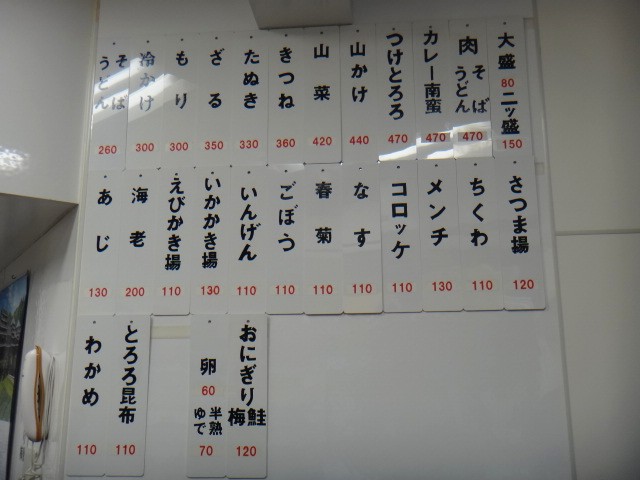 大盛 80 二ッ盛 150
肉 そば うどん 470
カレー南蛮 470
つけとろろ 470
山かけ 440
山菜 420
きつね 360
たぬき 330
ざる 350
もり 300
冷かけ 300
そば うどん 260
さつま揚 120
ちくわ 110
メンチ 130
コロッケ 110
なす 110
春菊 110
ごぼう 110
いんげん 110
いかかき揚 130
えびかき揚 110
海老 200
あじ 130
おにぎり 鮭 梅 120
卵 60 半熟 ゆで 70
とろろ昆布 110
わかめ 110